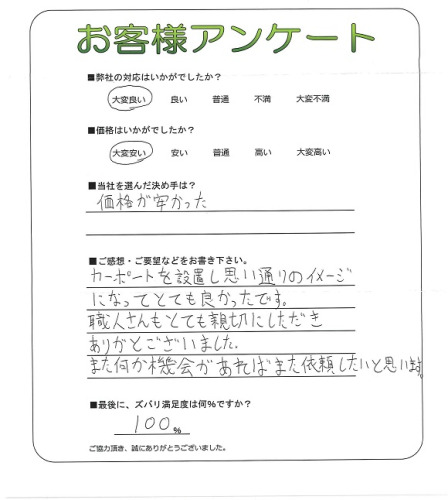 お客様アンケート
■弊社の対応はいかがでしたか？
大変良い 良い 普通 不満 大変不満
■価格はいかがでしたか？
大変安い 安い 普通 高い 大変高い
■当社を選んだ決め手は？
価格が安かった
■ご感想・ご要望などをお書き下さい。
カーポートを設置し思い通りのイメージ
になってとても良かったです。
職人さんもとても親切にしただき
ありがとございました。
また何か機会があればまた依頼したいと思います。
■最後に、ズバリ満足度は何％ですか？
100％
ご協力頂き、誠にありがとうございました。